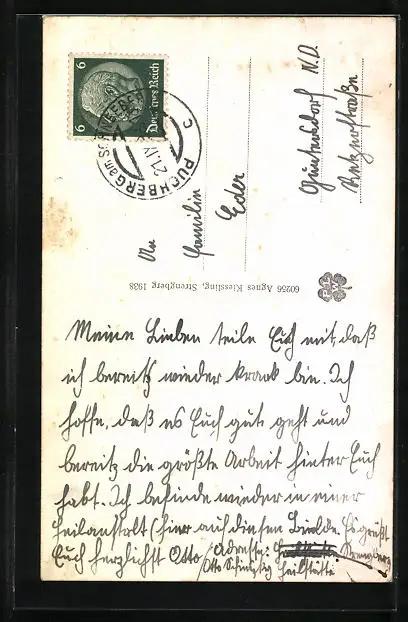 6 6
Deutsches Reich
PUCHBERG am SCHNEEBERG
21.IV
C
An
Familie
Eder
Guntersdorf N.D.
Retzerstraße
60256 Agnes Kiessling, Strengberg 1938
Meine Lieben teile Euch mit, daß
ich bereitz wieder krank bin. Ich
hoffe, daß es Euch gut geht und
bereitz die größte Arbeit hinter Euch
habt. Ich befinde wieder in einer
Heilanstalt (hier auf diesen Bilde. Es grüßt
Euch herzlichst Otto / Adresse: Strengberg
Otto Heilstätte